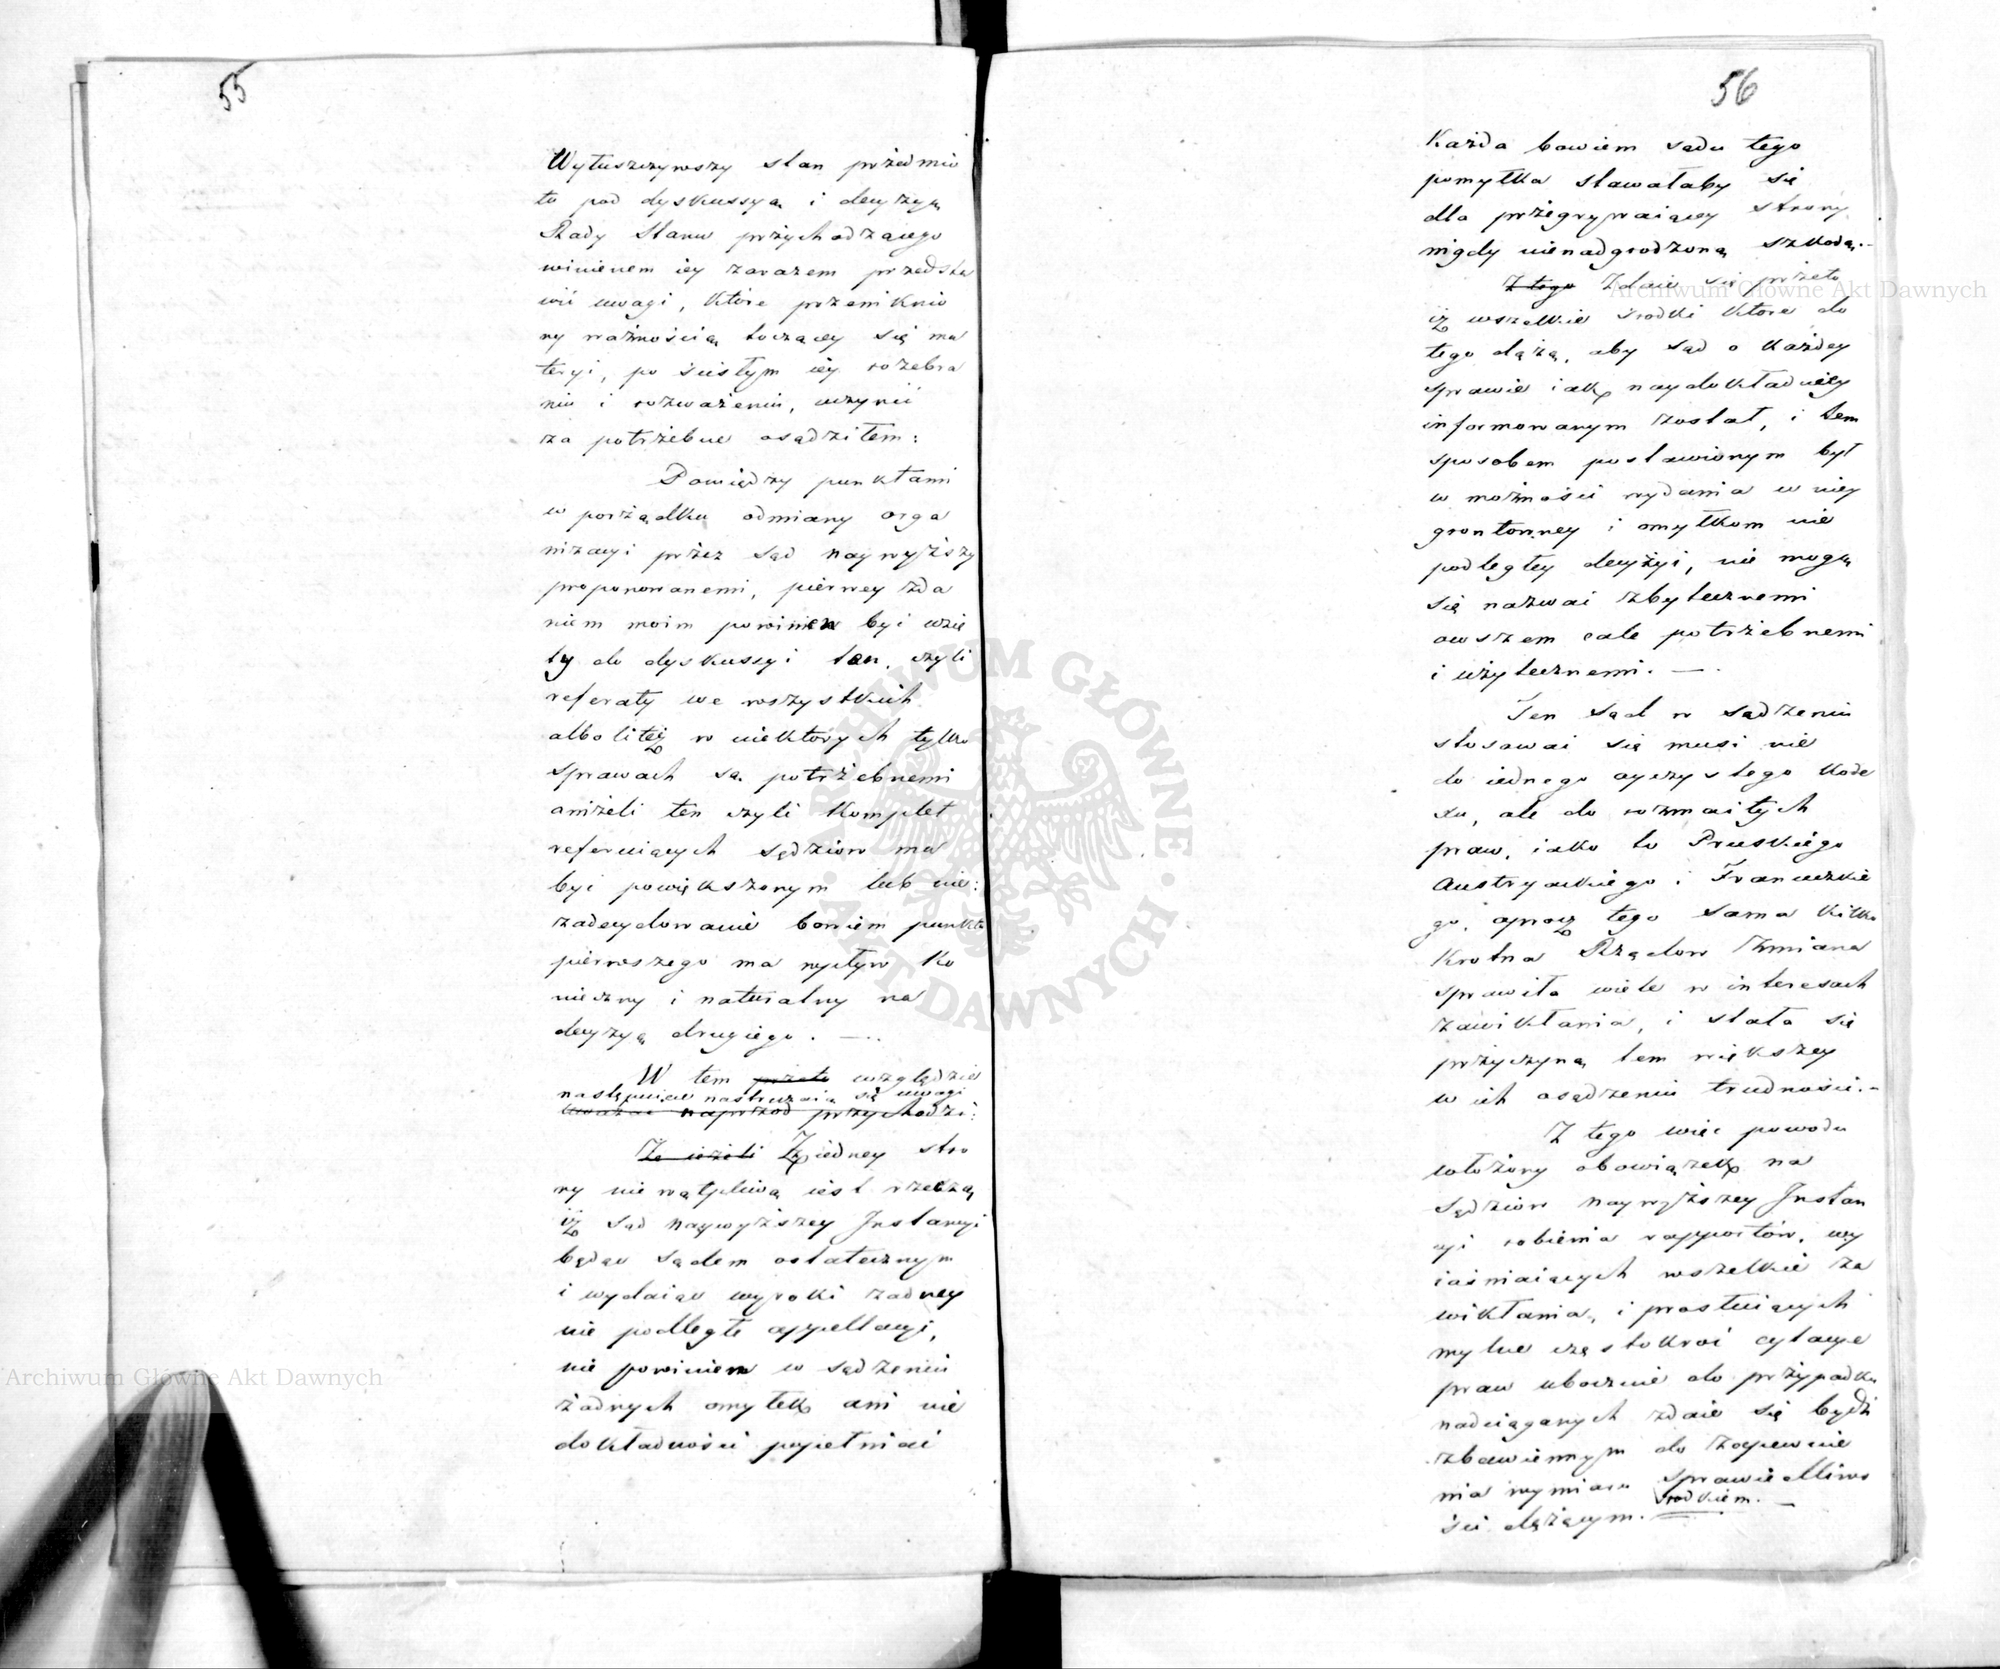 55
Wyłuszczywszy stan przedmio
tu pod dyskussyą i decyzyą
Rady Stanu przychodzącego
winienem iey zarazem przedsta
wić uwagi, które przeniknio
ny ważnością toczącey się ma
teryi, po ścisłym iéy rozebra
niu i rozważeniu, uczynić
za potrzebne osądziłem:
Pomiędzy punktami
w porządku odmiany orga
nizacyi przez Sąd naywyższy
proponowanemi, pierwey zda
niem moim powinien być wzię
ty do dyskussyi ten, czyli
referaty we wszystkich
albo liteż w niektórych tylko
sprawach są potrzebnemi
aniżeli ten czyli Komplet
referuiących Sędziow ma
być powiększonym lub nie:
zadecydowanie bowiem punktu
pierwszego ma wpływ ko
nieczny i naturalny na
decyzyą drugiego. —
W tem przeto względzie
następuiące nastręczaią się uwagi
uważać naprzod przychodzi:
Że ieżeli Z iedney stro
ny nie wątpliwą iest rzeczą
iż Sąd Naywyższey Instancyi
będąc Sądem ostatecznym
i wydaiąc wyroki żadney
nie podległe appellacyi,
nie powinien w sądzeniu
żadnych omyłek ani nie
dokładności popełniać
56
Każda bowiem sądu tego
pomyłka stawałaby się
dla przegrywaiącey strony
nigdy nienadgrodzoną szkodą.–
Z tego Zdaie się przeto
iż wszelkie środki które do
tego dążą, aby Sąd o każdey
sprawie iak naydokładniey
informowanym został, i tem
sposobem postawionym był
w możności wydania w niey
gruntowney i omyłkom nie
podległey decyzyi, nie mogą
się nazwać zbytecznemi
owszem cale potrzebnemi
i użytecznemi. —
Ten Sąd w sądzeniu
stosować się musi nie
do iednego oyczystego Kode
xu, ale do rozmaitych
praw, iako to Pruskiego
Austryackiego i Francuzkie
go, oprocz tego sama kilko
krotna Rządow zmiana
sprawiła wiele w interesach
zawikłania, i stała się
przyczyną tem większey
w ich osądzeniu trudności.–
Z tego więc powodu
włożony obowiązek na
Sędziow naywyższey Instan
cyi robienia rapportów, wy
iaśniaiących wszelkie za
wikłania, i prostuiących
mylne częstokroć cytacye
praw ubocznie do przypadku
nadciąganych zdaie się bydź
zbawiennym do zapewnie
nia wymiaru sprawiedliwo
środkiem. —
ści dążącym.
Archiwum Główne Akt Dawnych
Archiwum Główne Akt Dawnych
ARCHIWUM GŁÓWNE · AKT DAWNYCH ·